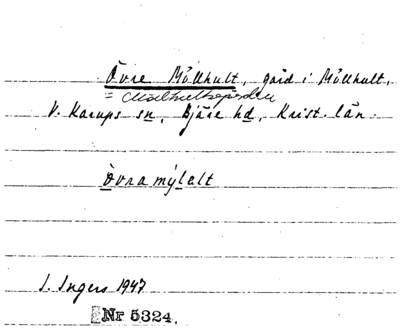 Övre Möllhult, gård i Möllhult,
= Möllhultsgården
V. Karups sn, Bjäre hd, Krist. län.
ȯvra mýlɛlt
I. Ingers 1947
Nr 5324.